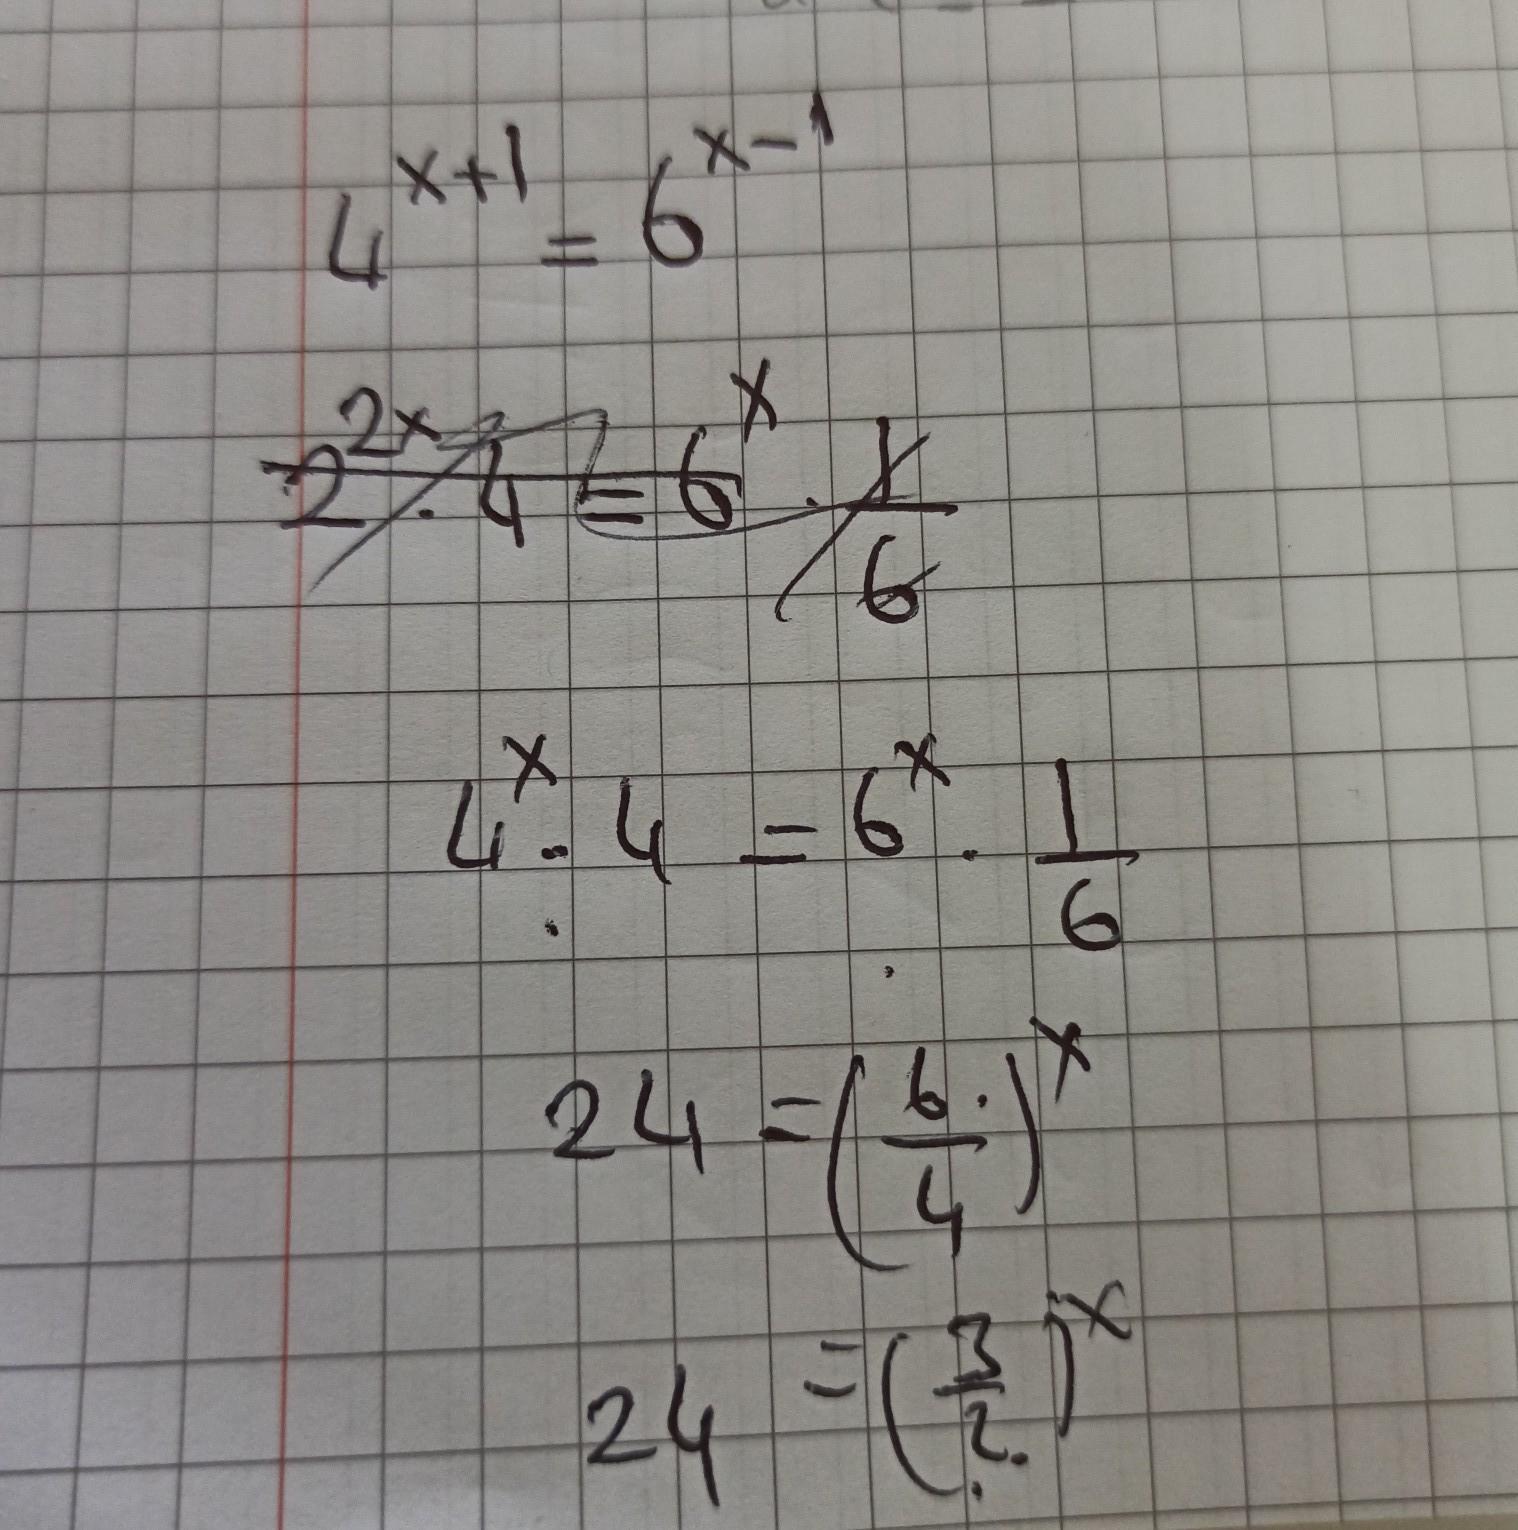 4^(x+1) = 6^(x-1)
2^(2x) · 4 = 6^x · 1/6
4^x · 4 = 6^x · 1/6
24 = (6/4)^x
24 = (3/2)^x